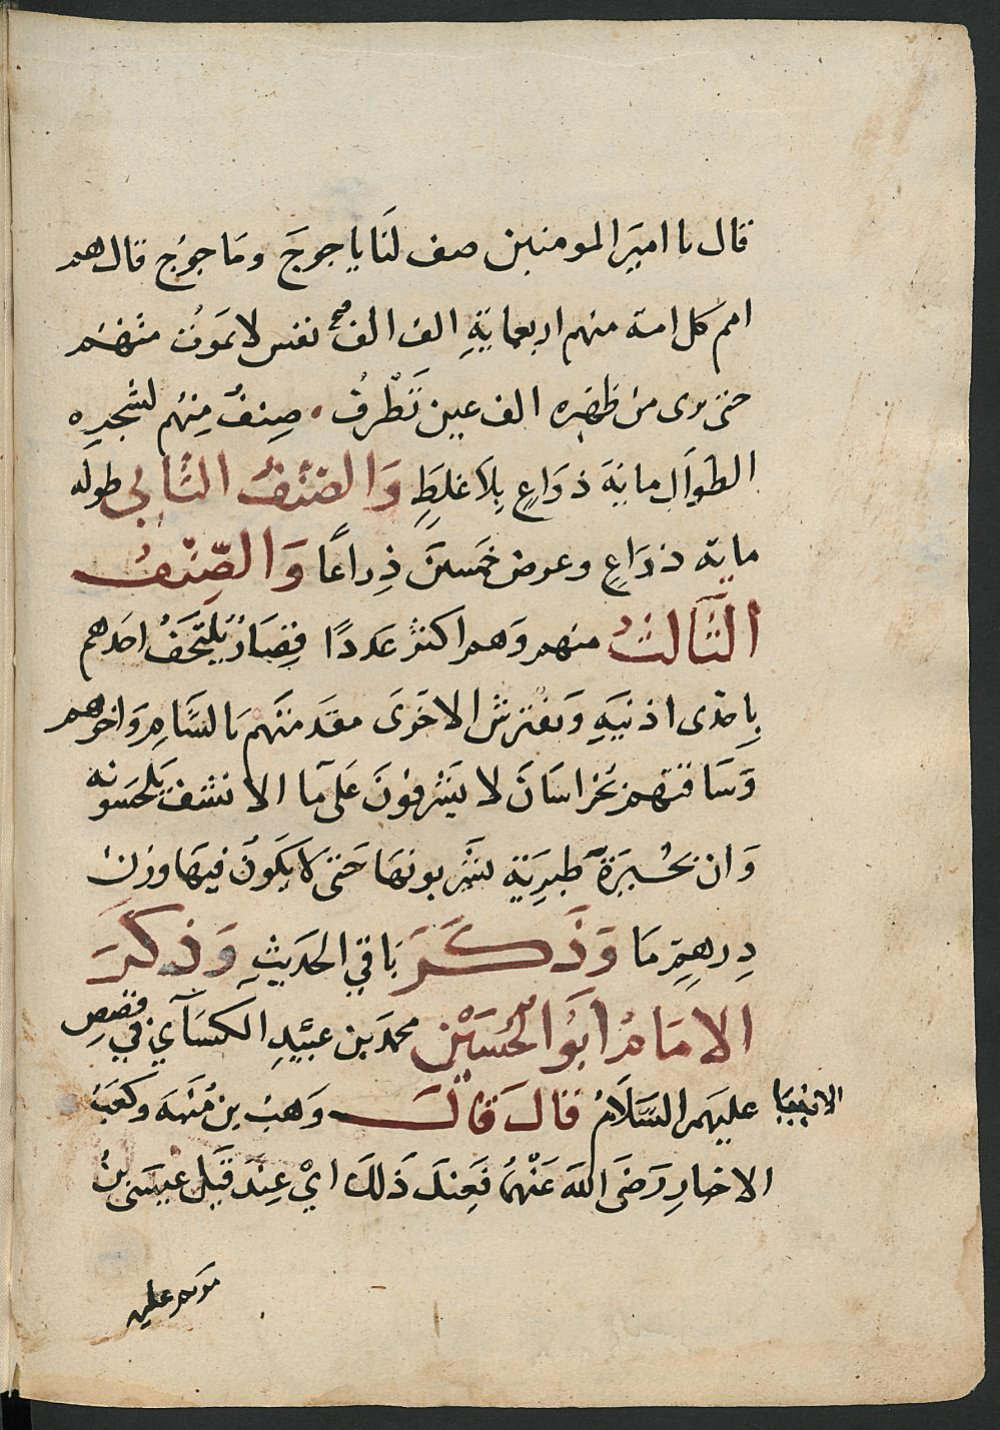 قال يا اميَر المومنين صف لَنَا يا جوجَ ومَا جوُج قال هم
امم كل امة منهم اربعمايةِ الف الف نفس لا يموتُ منهم
حتى يرى من ظهره الف عين تَطْرفُ . صِنفٌ مِنهُم لشجرِه
الطَوَال ماية ذرَاعٍ بِلاَ غلَطِ وَالصنفُ الثانِي طوله
ماية ذرَاعٍ وعرض خمَسينَ ذِراعًا وَالصِّنْفُ
الثَّالثُ منهم وَهم اكثر عَددًا قِصَارٌ يَلتَحَفُ احَدهم
بِاحدى اذنيَهِ وَيفترشُ الاخرَى مقدَمتَهم بَالشَّامِ وَاخرهم
وَسَاقتهم بخرَاسَانَ لا يَشرفوُنَ عَلى مآ الا نشف يَلحَسونه
وَان بحُيرَة طَبرِيَة يشَربونهَا حَتى لا يَكَونُ فيهَا وزنُ
دِرهمٍ مَا وَذَكَرَ بَاقي الحَديثِ وَذكرَ
الامَامُ ابَو الحُسَيْن محمَد بن عبَيدِ الكسَآي في قصَصِ
الانبيا عليهم السَّلاَمُ قالَ قَالَ وَهبُ بن مُنَبهَ وكَعَبُ
الاخبارِ رَضىَ الله عَنهُما فَعِندَ ذَلكَ ايْ عِندَ قبَل عيسَى بنُ
مريم عليه